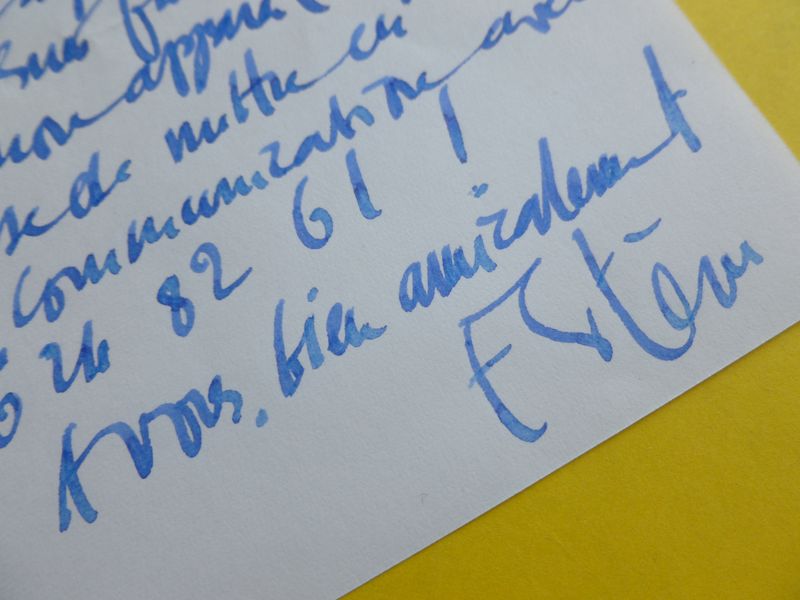 mon appare
de mettre en
communication avec
24 82 61 !
A vous, bien amicalement
Estève